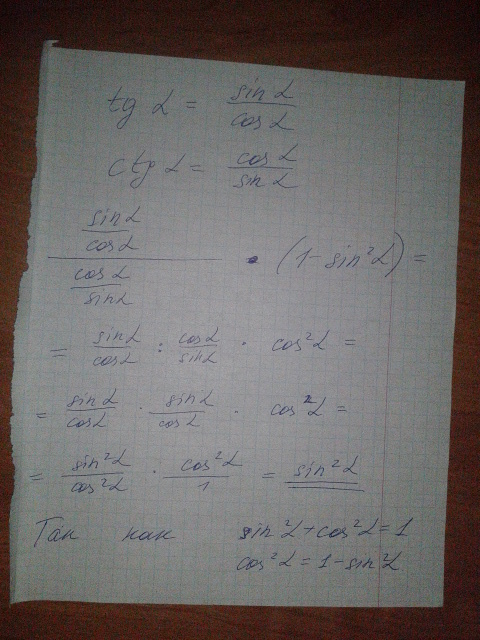 tg α = sin α / cos α
ctg α = cos α / sin α
(sin α / cos α) / (cos α / sin α) · (1 - sin²α) =
= sin α / cos α : cos α / sin α · cos²α =
= sin α / cos α · sin α / cos α · cos²α =
= sin²α / cos²α · cos²α / 1 = sin²α
Так как sin²α + cos²α = 1
cos²α = 1 - sin²α